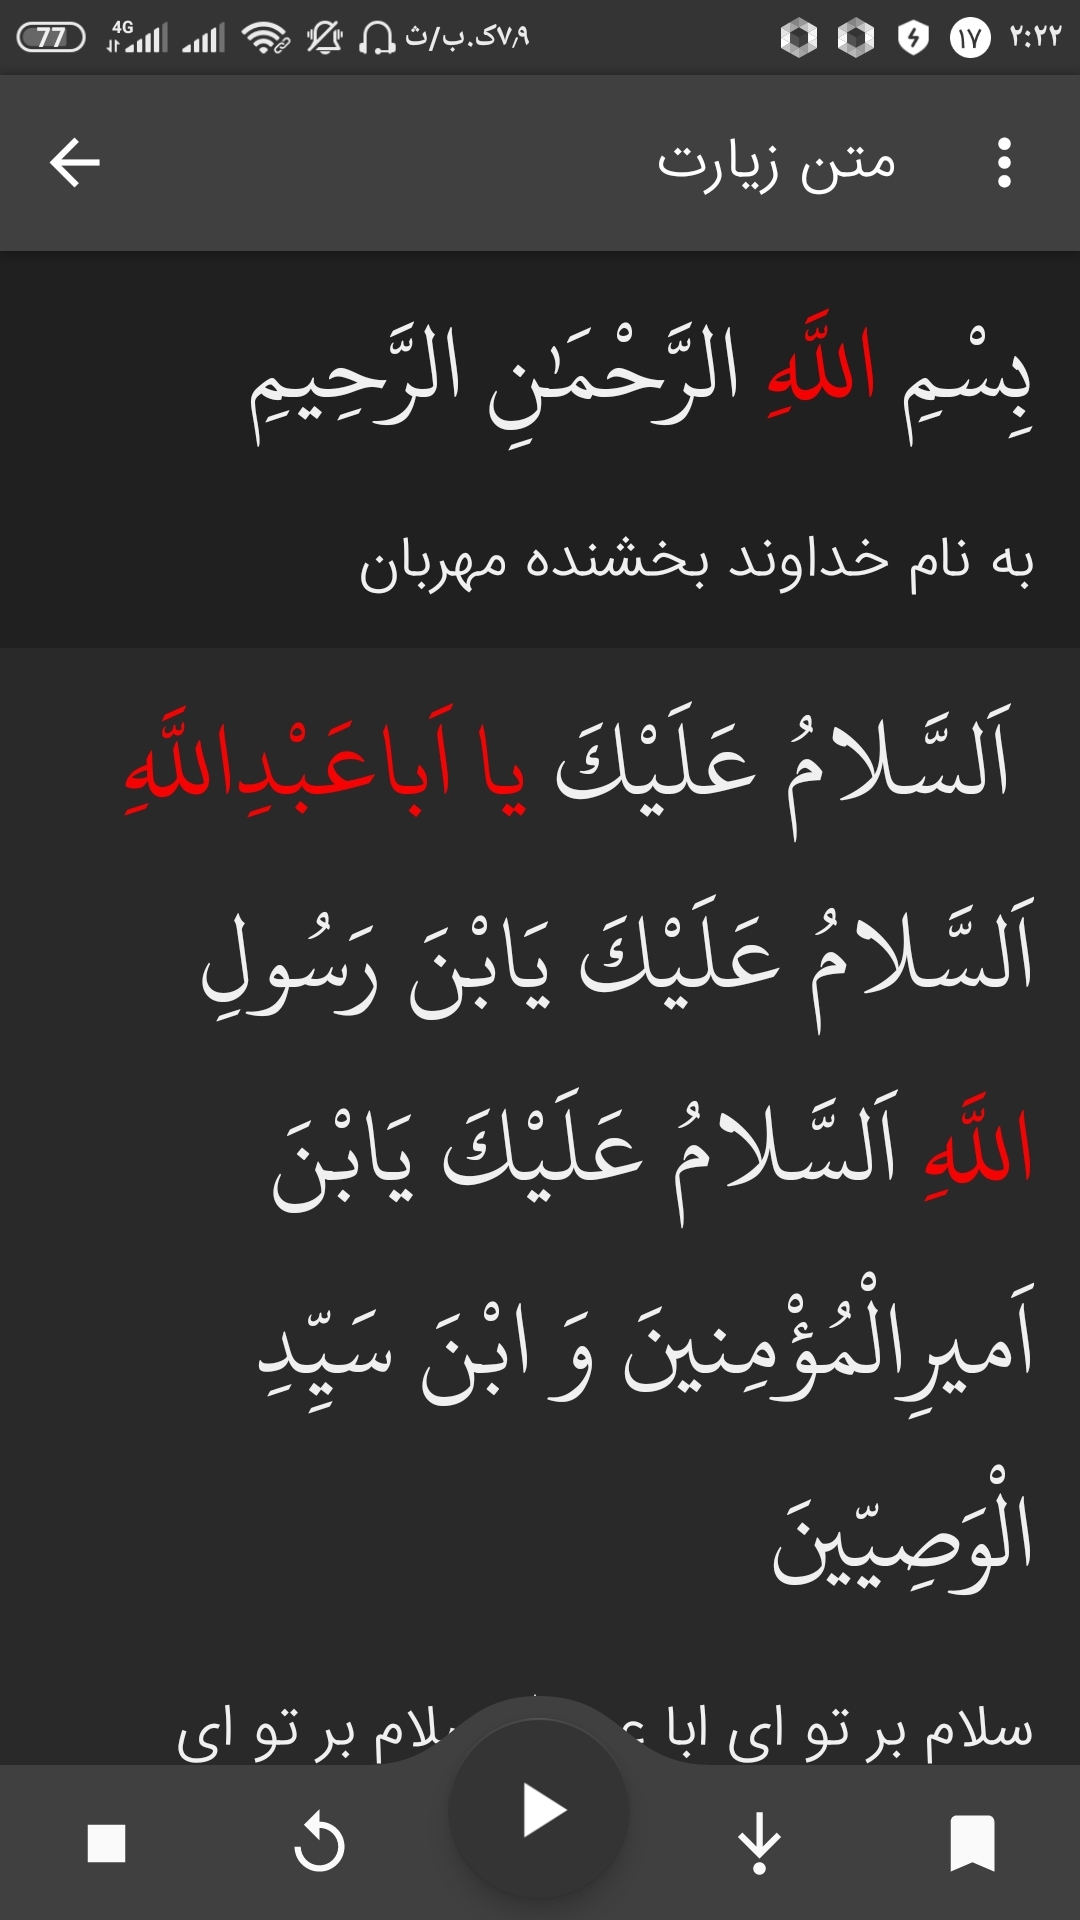 77 4G ۷٫۹ک.ب/ث ۱۷ ۲:۲۲
متن زیارت
بِسْمِ اللَّهِ الرَّحْمَٰنِ الرَّحِيمِ
به نام خداوند بخشنده مهربان
اَلسَّلامُ عَلَيْكَ يا اَباعَبْدِاللَّهِ
اَلسَّلامُ عَلَيْكَ يَابْنَ رَسُولِ
اللَّهِ اَلسَّلامُ عَلَيْكَ يَابْنَ
اَميرِالْمُؤْمِنينَ وَ ابْنَ سَيِّدِ
الْوَصِيّينَ
سلام بر تو ای ابا بر تو ای